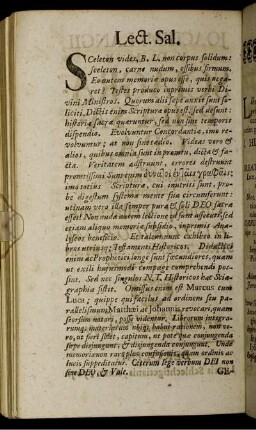 Lect. Sal.
SCeleton vides, B. L. non corpus solidum:
sceleton, carne nudum, ossibus firmum.
Eo autem memoriæ opus esse, quis nega-
ret? Testes produco inprimis verbi Di-
vini Ministros. Quorum alii sepe anxie sunt sol-
liciti, Dictis enim Scripturæ opus est, sed desunt:
historia sacræ quæruntur, sed non sine temporis
dispendio. Evolvuntur Concordantiæ, imo re-
volvuntur; at non sine tædio. Videas vero &
alios, quibus omnia sunt in promtu, dicta & fa-
cta. Veritatem adstruunt, errores destruunt
promtissimi Sunt enim δυνατοὶ ἐν ταῖς γραφαῖς;
imo totius Scripturæ, cui innutriti sunt, pro-
be digestum systema mente sua circumferunt:
utinam vero illa semper pura & soli DEO sacra
esset! Non nuda autem lectione id sunt assecuti, sed
etiam aliquo memoriæ subsidio, inprimis Ana-
lyseos beneficio.
Didactici
enim ac Prophetici longe sunt fœcundiores, quam
ut exili hujusmodi compage comprehendi pos-
sint. Sed nec singulos N. T. Historicos hæc Scia-
graphia sistit. Omissus enim est Marcus cum
Luca; quippe qui facilius ad ordinem seu pa-
rallelismum Matthæi ac Johannis revocari, quam
seorsim notari, posse videntur. Librorum integra-
rumq; materiarum nexum, ubi habet rationem, non ve-
ro, ut fieri solet, capitum, ne potè quæ conjungenda
sæpe disjungunt, & disjungenda conjungunt, Unde
memoria non raro plus confusionis, quam ordinis ac
lucis suppeditatur. Cæterum lege verbum DEI non
sine DEO, & Vale.
GE-